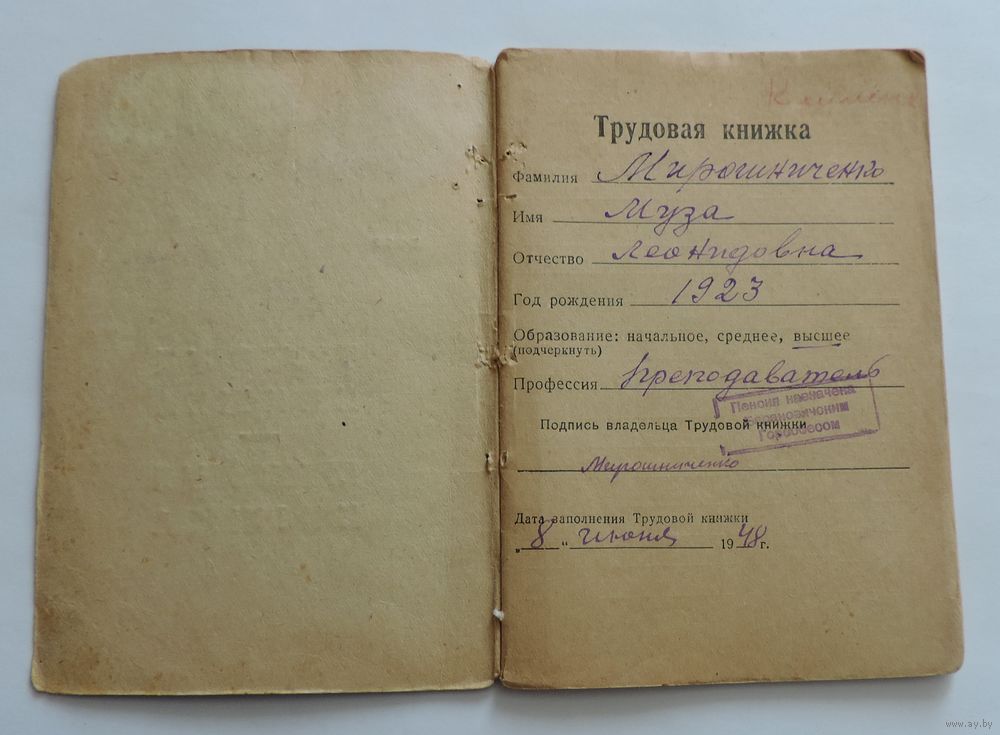 Трудовая книжка
Фамилия Мирошниченко
Имя Муза
Отчество Леонидовна
Год рождения 1923
Образование: начальное, среднее, высшее
(подчеркнуть)
Профессия преподаватель
Пенсия назначена
Барановичским
Горсобесом
Подпись владельца Трудовой книжки
Мирошниченко
Дата заполнения Трудовой книжки
„8“ июня 1948 г.
www.ay.by